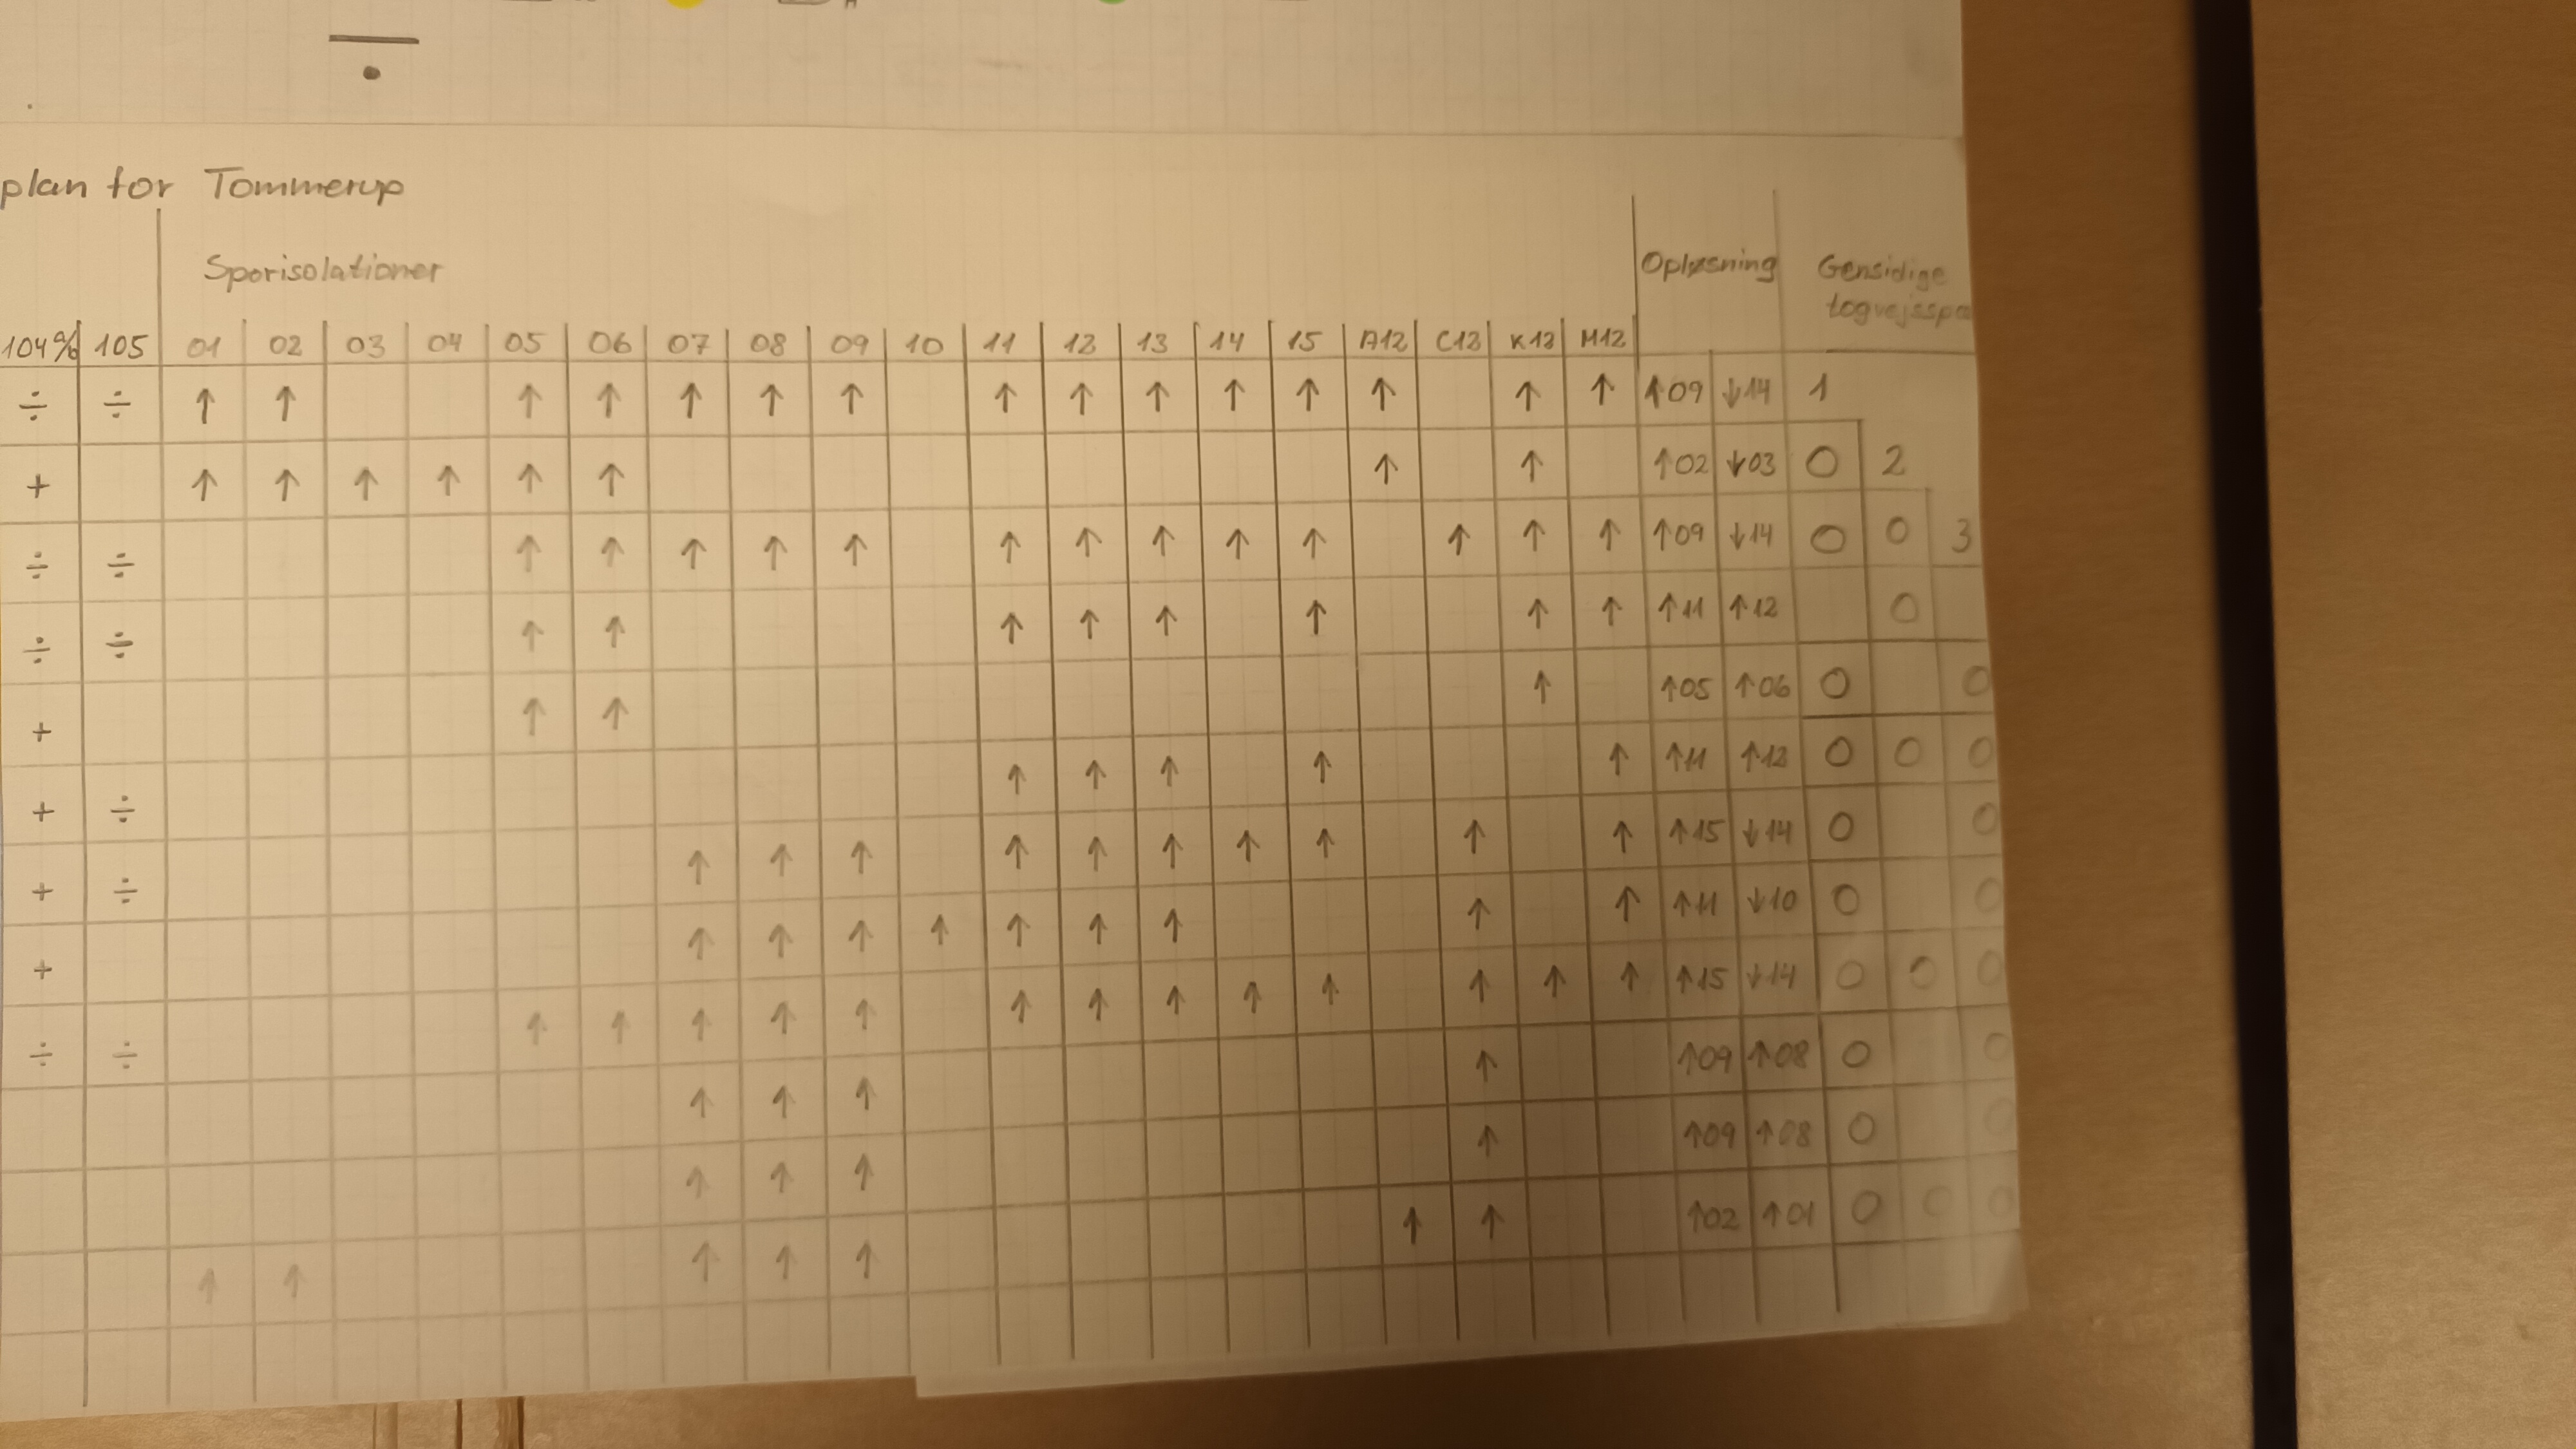 plan for Tommerup
Sporisolationer Opløsning Gensidige
togvejsspæ
104% 105 01 02 03 04 05 06 07 08 09 10 11 12 13 14 15 A12 C12 K12 M12
÷ ÷ ↑ ↑ ↑ ↑ ↑ ↑ ↑ ↑ ↑ ↑ ↑ ↑ ↑ ↑ ↑ ↑09 ↓14 1
+ ↑ ↑ ↑ ↑ ↑ ↑ ↑ ↑ ↑02 ↓03 O 2
÷ ÷ ↑ ↑ ↑ ↑ ↑ ↑ ↑ ↑ ↑ ↑ ↑ ↑ ↑ ↑09 ↓14 O O 3
÷ ÷ ↑ ↑ ↑ ↑ ↑ ↑ ↑ ↑ ↑11 ↑12 O
+ ↑ ↑ ↑ ↑05 ↑06 O O
+ ÷ ↑ ↑ ↑ ↑ ↑ ↑11 ↑12 O O O
+ ÷ ↑ ↑ ↑ ↑ ↑ ↑ ↑ ↑ ↑ ↑ ↑15 ↓14 O O
+ ↑ ↑ ↑ ↑ ↑ ↑ ↑ ↑ ↑ ↑11 ↓10 O O
÷ ÷ ↑ ↑ ↑ ↑ ↑ ↑ ↑ ↑ ↑ ↑ ↑ ↑ ↑ ↑15 ↓14 O O O
↑ ↑ ↑ ↑ ↑09 ↑08 O O
↑ ↑ ↑ ↑ ↑09 ↑08 O O
↑ ↑ ↑ ↑ ↑ ↑ ↑ ↑02 ↑01 O O O